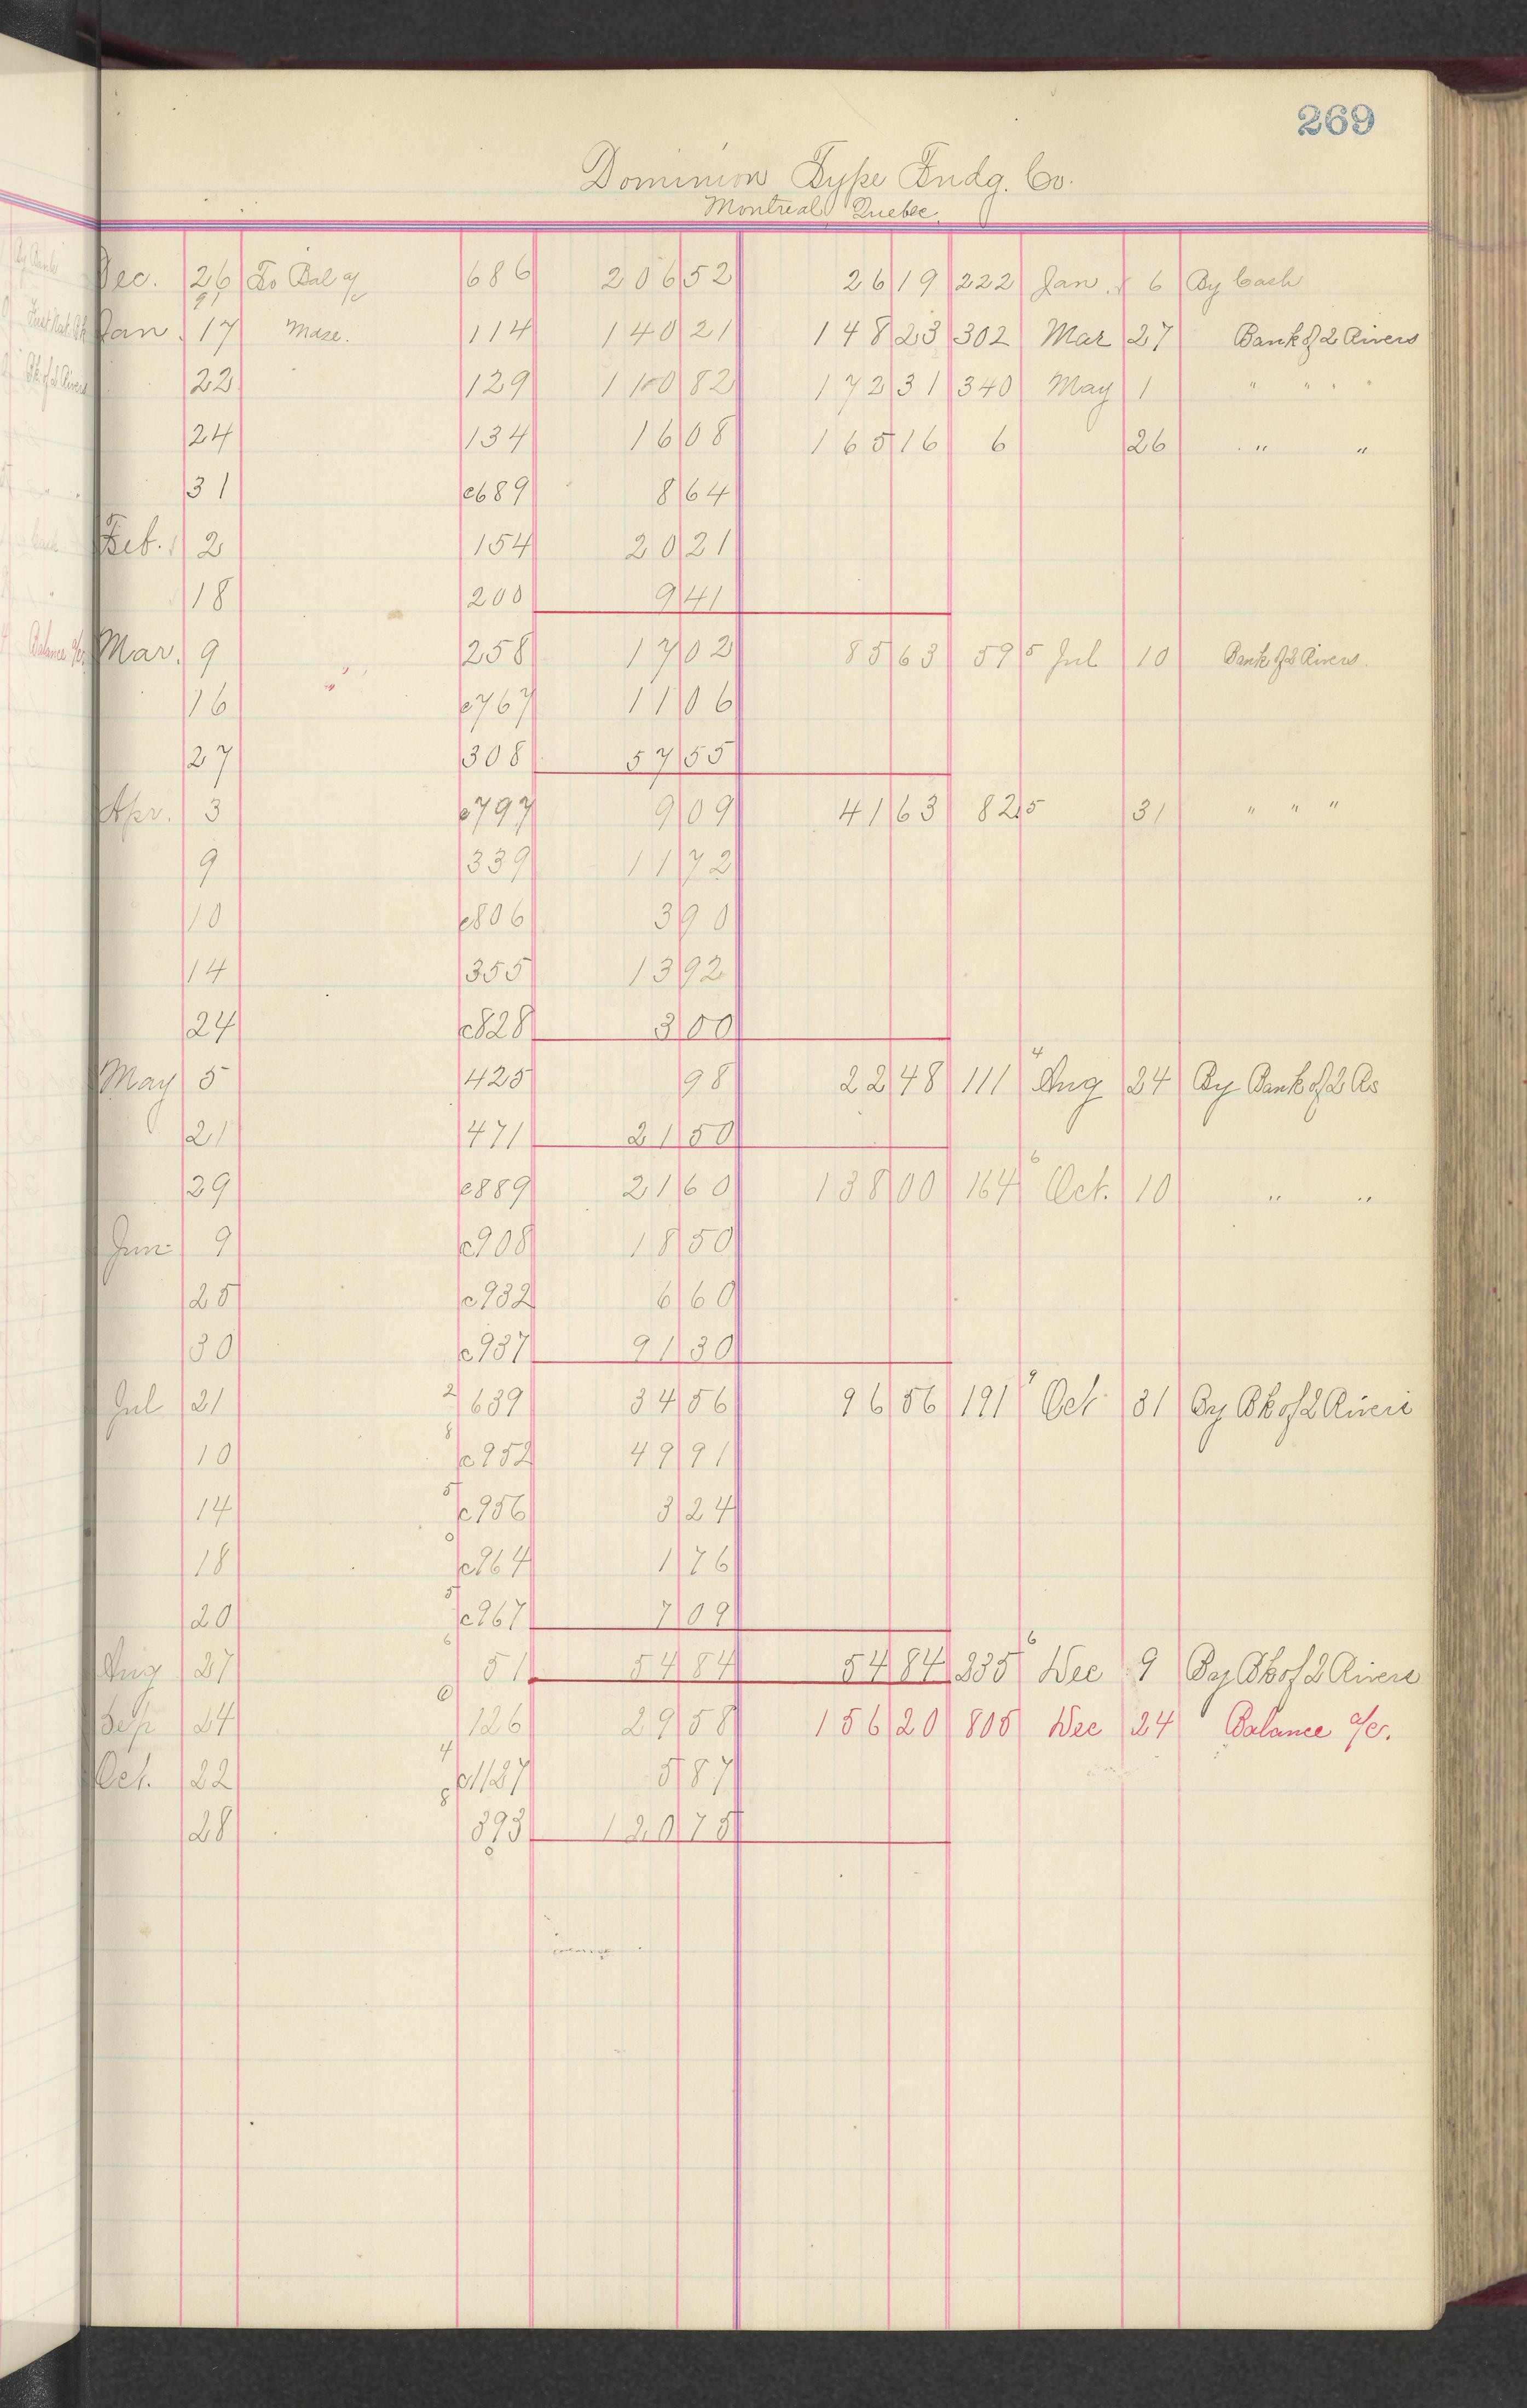 269
Dominion Type Fndg. Co.
Montreal Quebec.
Dec. 26 To Bal a/c 686 206 52 26 19 222 Jan. 6 By Cash
Jan. 17 Mdse. 114 140 21 148 23 302 Mar 27 Bank of 2 Rivers
22 129 110 82 172 31 340 May 1 " " " "
24 134 16 08 165 16 6 26 " "
31 c689 8 64
Feb. 2 154 20 21
18 200 9 41
Mar. 9 258 17 02 85 63 59 5 Jul 10 Bank of 2 Rivers.
16 c767 11 06
27 308 57 55
Apr. 3 c797 9 09 41 63 82 5 31 " " "
9 339 11 72
10 c806 3 90
14 355 13 92
24 c828 3 00
May 5 425 98 22 48 111 4 Aug 24 By Bank of 2 Rs
21 471 21 50
29 c889 21 60 138 00 164 6 Oct. 10 " "
Jun 9 c908 18 50
25 c932 6 60
30 c937 91 30
Jul 21 2 639 34 56 96 56 191 9 Oct 31 By Bk of 2 Rivers
10 8 c952 49 91
14 5 c956 3 24
18 0 c964 1 76
20 5 c967 7 09
Aug 27 6 51 54 84 54 84 235 6 Dec 9 By Bk of 2 Rivers
Sep 24 126 29 58 156 20 805 Dec 24 Balance a/c.
Oct. 22 4 c1127 5 87
28 8 393 120 75